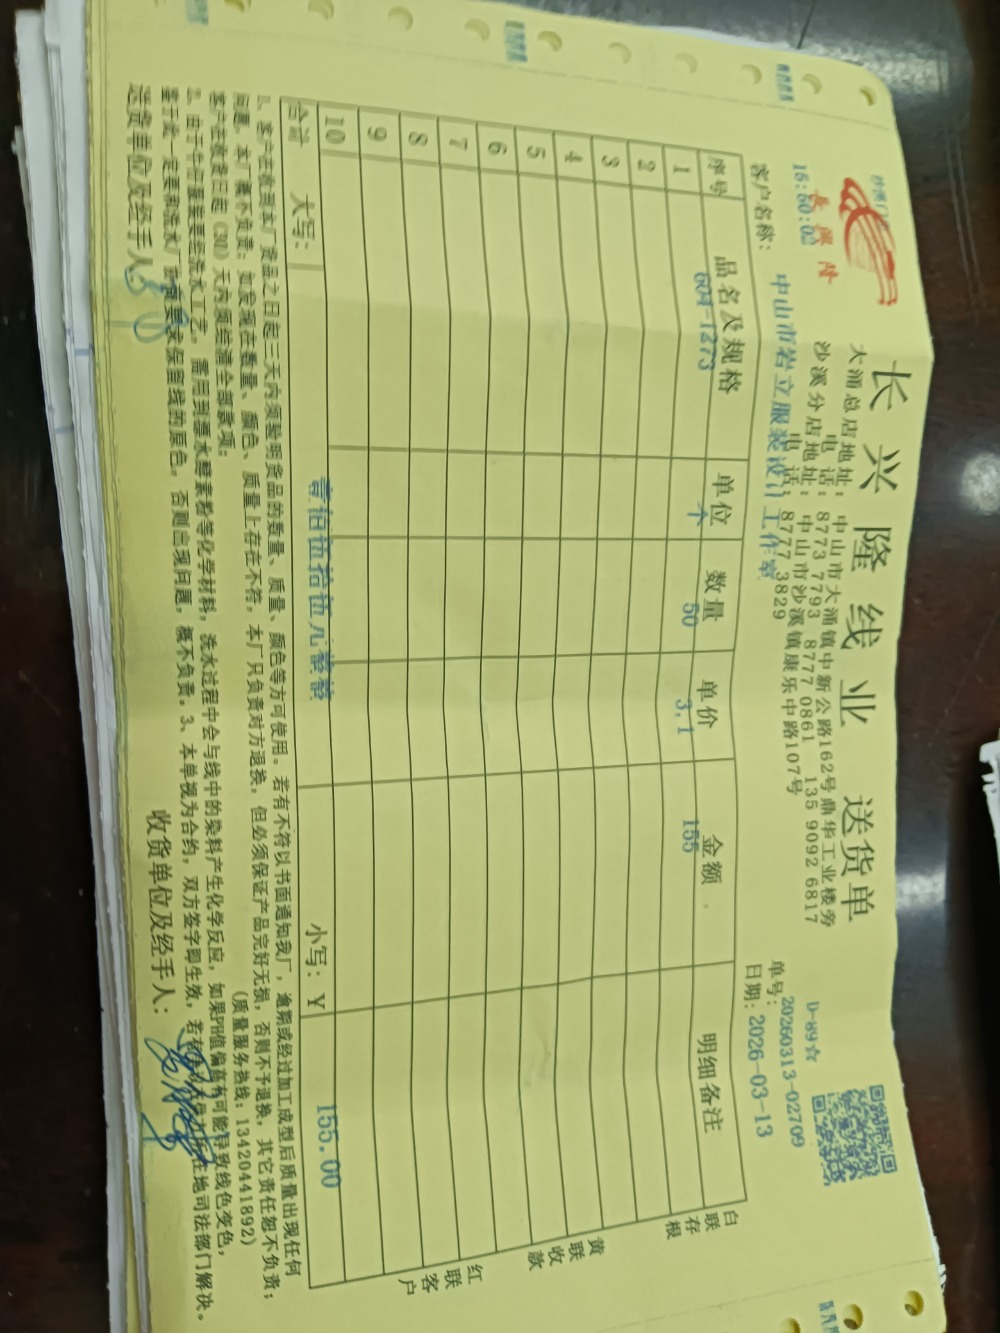 长兴隆线业 送货单
長興隆
16:50:02
大涌总店地址：中山市大涌镇中新公路162号鼎华工业楼旁
电话：8773 7793 8777 0861 135 9092 6817
沙溪分店地址：中山市沙溪镇康乐中路107号
电话：8777 3829
D-89☆
单号：20260313-02709
客户名称：中山市岩立服装设计工作室
日期：2026-03-13
序号 品名及规格 单位 数量 单价 金额 明细备注
1 604-1273 个 50 3.1 155
2
3
4
5
6
7
8
9
10
合计 大写： 壹佰伍拾伍元整 小写：￥ 155.00
白联存根
黄联收款
红联客户
1、客户在收到本厂货品之日起三天内须验明货品的数量、质量、颜色等方可使用。若有不符以书面通知我厂，逾期或经过加工成型后质量出现任何
问题，本厂概不负责；如发现在数量、颜色、质量上存在不符，本厂只负责对方退换，但必须保证产品完好无损，否则不予退换，其它责任恕不负责；
客户在收货日起（30）天内须结清全部款项； （质量服务热线：13420441892）
2、由于牛仔服装要经洗水工艺。需用到漂水酵素粉等化学材料，洗水过程中会与线中的染料产生化学反应，如果PH值偏高有可能导致线色变色，
鉴于此一定要和洗水厂 保留线的原色。否则出现问题，概不负责。3、本单视为合约，双方签字即生效，若有 在地司法部门解决。
送货单位及经手人：
收货单位及经手人：